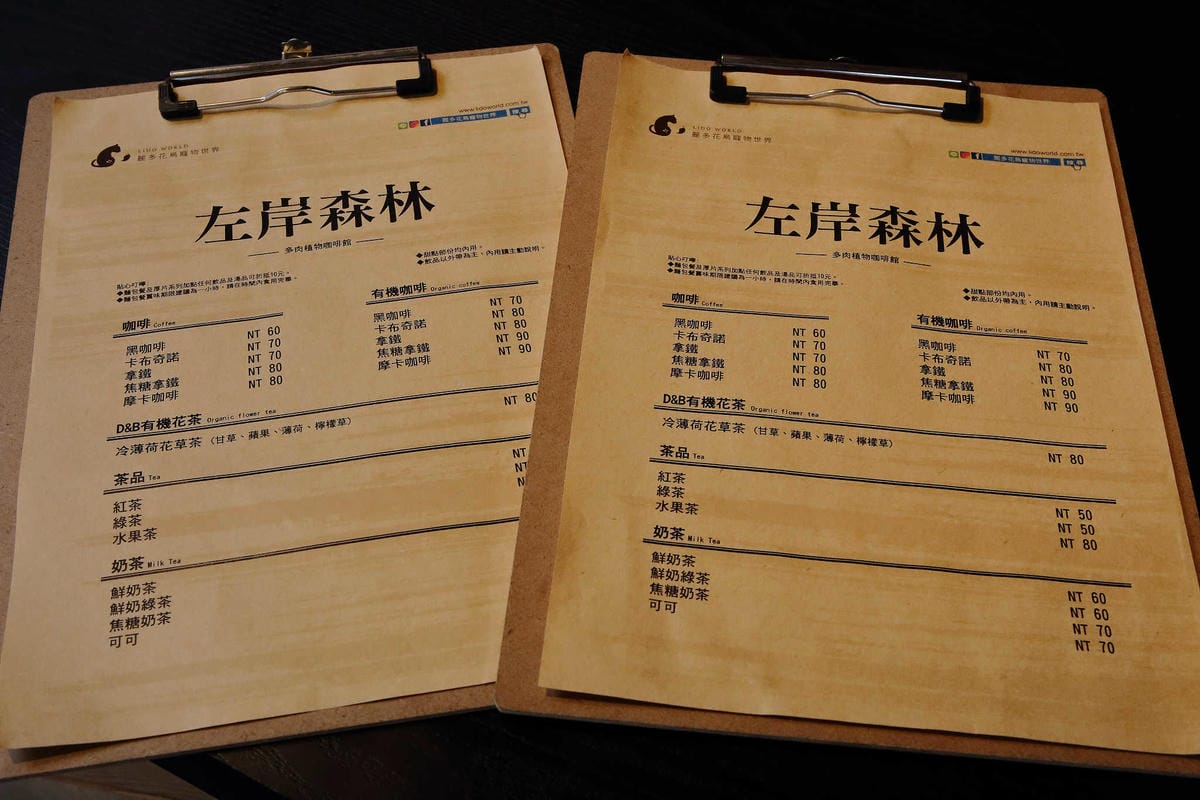 www.lidoworld.com.tw
麗多花鳥寵物世界 搜尋
LIDO WORLD
麗多花鳥寵物世界
左岸森林
多肉植物咖啡館
◆甜點部份均內用。
◆飲品以外帶為主、內用請主動說明。
貼心叮嚀:
◆麵包餐及厚片系列加點任何飲品及湯品可折抵10元。
◆麵包餐賞味期限建議為一小時,請在時間內食用完畢。
咖啡 Coffee
黑咖啡 NT 60
卡布奇諾 NT 70
拿鐵 NT 70
焦糖拿鐵 NT 80
摩卡咖啡 NT 80
有機咖啡 Organic coffee
黑咖啡 NT 70
卡布奇諾 NT 80
拿鐵 NT 80
焦糖拿鐵 NT 90
摩卡咖啡 NT 90
D&B有機花茶 Organic flower tea
冷薄荷花草茶 (甘草、蘋果、薄荷、檸檬草) NT 80
茶品 Tea
紅茶 NT
綠茶 NT
水果茶
奶茶 Milk Tea
鮮奶茶
鮮奶綠茶
焦糖奶茶
可可
LIDO WORLD
麗多花鳥寵物世界
www.lidoworld.com.tw
麗多花鳥寵物世界 搜尋
左岸森林
多肉植物咖啡館
貼心叮嚀:
◆麵包餐及厚片系列加點任何飲品及湯品可折抵10元。
◆麵包餐賞味期限建議為一小時,請在時間內食用完畢。
◆甜點部份均內用。
◆飲品以外帶為主、內用請主動說明。
咖啡 Coffee
黑咖啡 NT 60
卡布奇諾 NT 70
拿鐵 NT 70
焦糖拿鐵 NT 80
摩卡咖啡 NT 80
有機咖啡 Organic coffee
黑咖啡 NT 70
卡布奇諾 NT 80
拿鐵 NT 80
焦糖拿鐵 NT 90
摩卡咖啡 NT 90
D&B有機花茶 Organic flower tea
冷薄荷花草茶 (甘草、蘋果、薄荷、檸檬草) NT 80
茶品 Tea
紅茶 NT 50
綠茶 NT 50
水果茶 NT 80
奶茶 Milk Tea
鮮奶茶 NT 60
鮮奶綠茶 NT 60
焦糖奶茶 NT 70
可可 NT 70